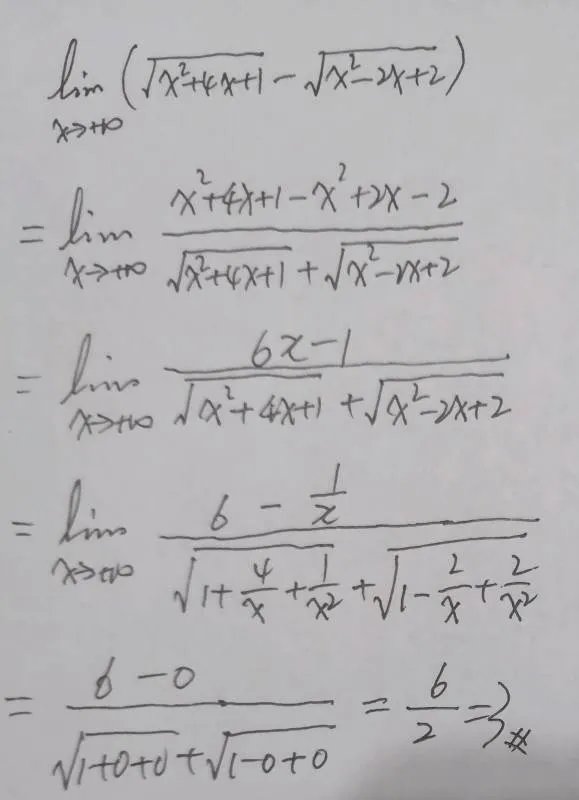 lim x→+∞ (√(x²+4x+1) - √(x²-2x+2))
= lim x→+∞ (x²+4x+1-x²+2x-2)/(√(x²+4x+1) + √(x²-2x+2))
= lim x→+∞ (6x-1)/(√(x²+4x+1) + √(x²-2x+2))
= lim x→+∞ (6 - 1/x)/(√(1+4/x+1/x²) + √(1-2/x+2/x²))
= (6-0)/(√(1+0+0) + √(1-0+0)) = 6/2 = 3 #